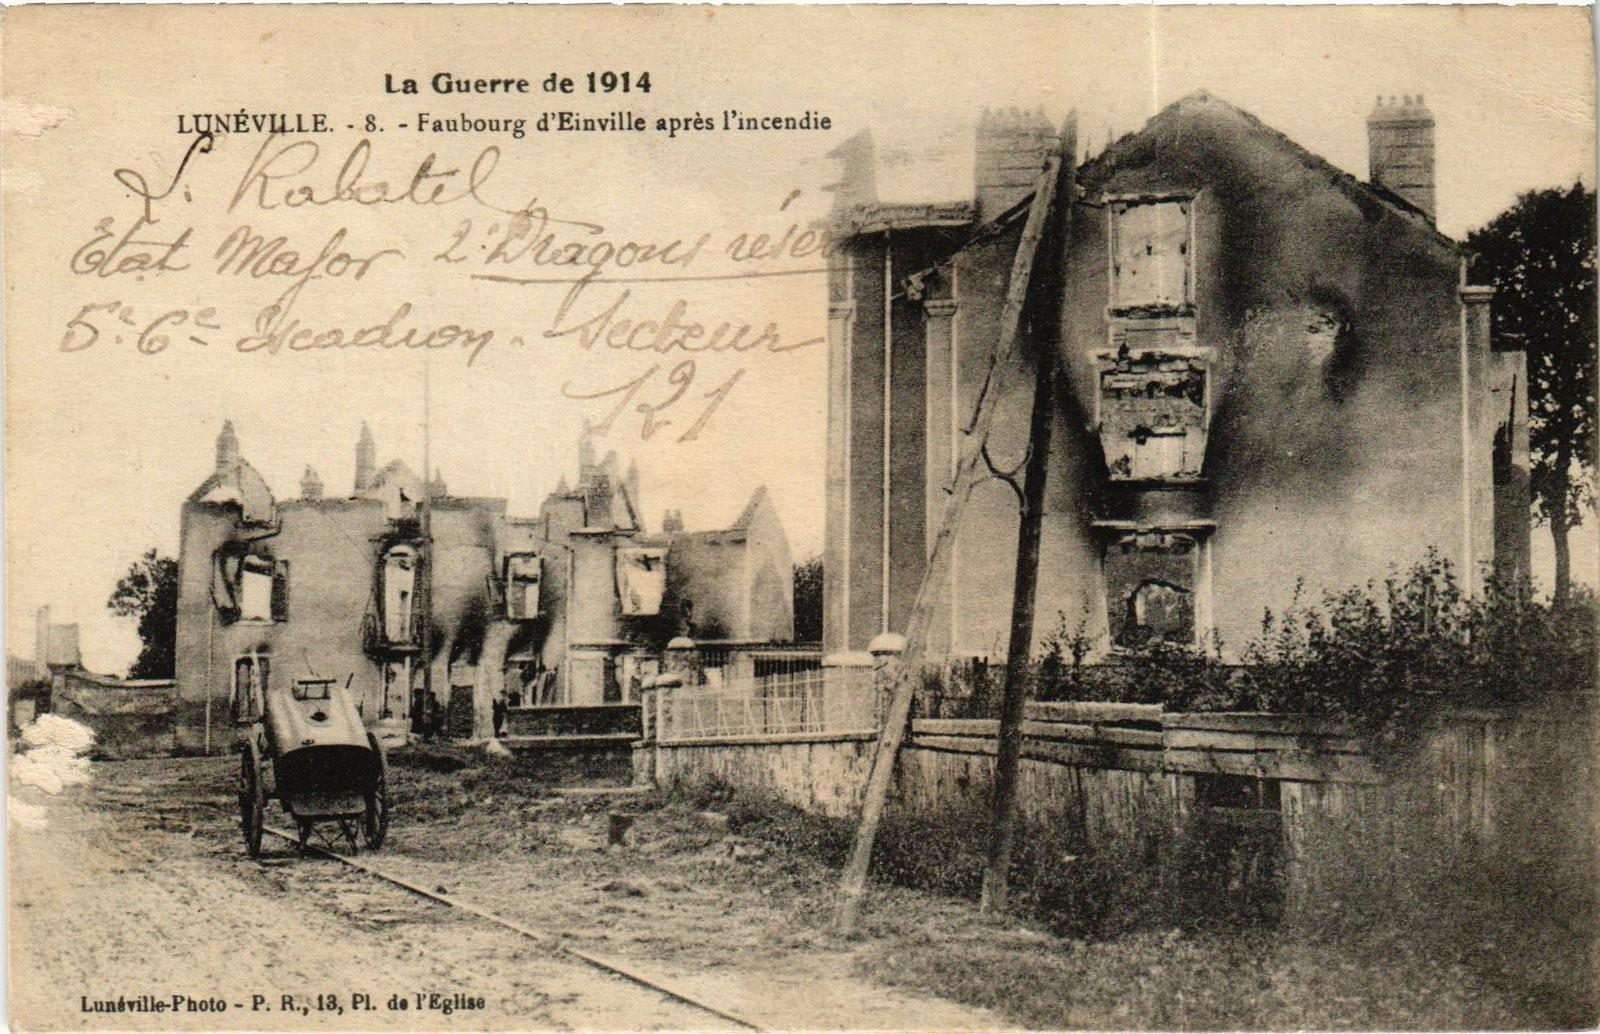 La Guerre de 1914
LUNÉVILLE. - 8. - Faubourg d'Einville après l'incendie
L. Rabatel
État Major 2e Dragons réser
5e 6e Escadron. Secteur
121
Lunéville-Photo - P. R., 13, Pl. de l'Eglise